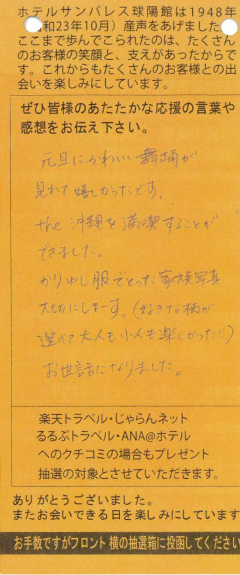 ホテルサンパレス球陽館は1948年
昭和23年10月）産声をあげました
ここまで歩んでこられたのは、たくさん
のお客様の笑顔と、支えがあったからで
す。これからもたくさんのお客様との出
会いを楽しみにしています。
ぜひ皆様のあたたかな応援の言葉や
感想をお伝え下さい。
元旦にかわいい舞踊が
見れて嬉しかったです。
the 沖縄を満喫することが
できました。
かりゆし服でとった家族写真
大切にしまーす。(好きな柄が
選べて大人も小人も楽しかった!!)
お世話になりました。
楽天トラベル・じゃらんネット
るるぶトラベル・ANA@ホテル
へのクチコミの場合もプレゼント
抽選の対象とさせていただきます。
ありがとうございました。
またお会いできる日を楽しみにしています
お手数ですがフロント横の抽選箱に投函してください